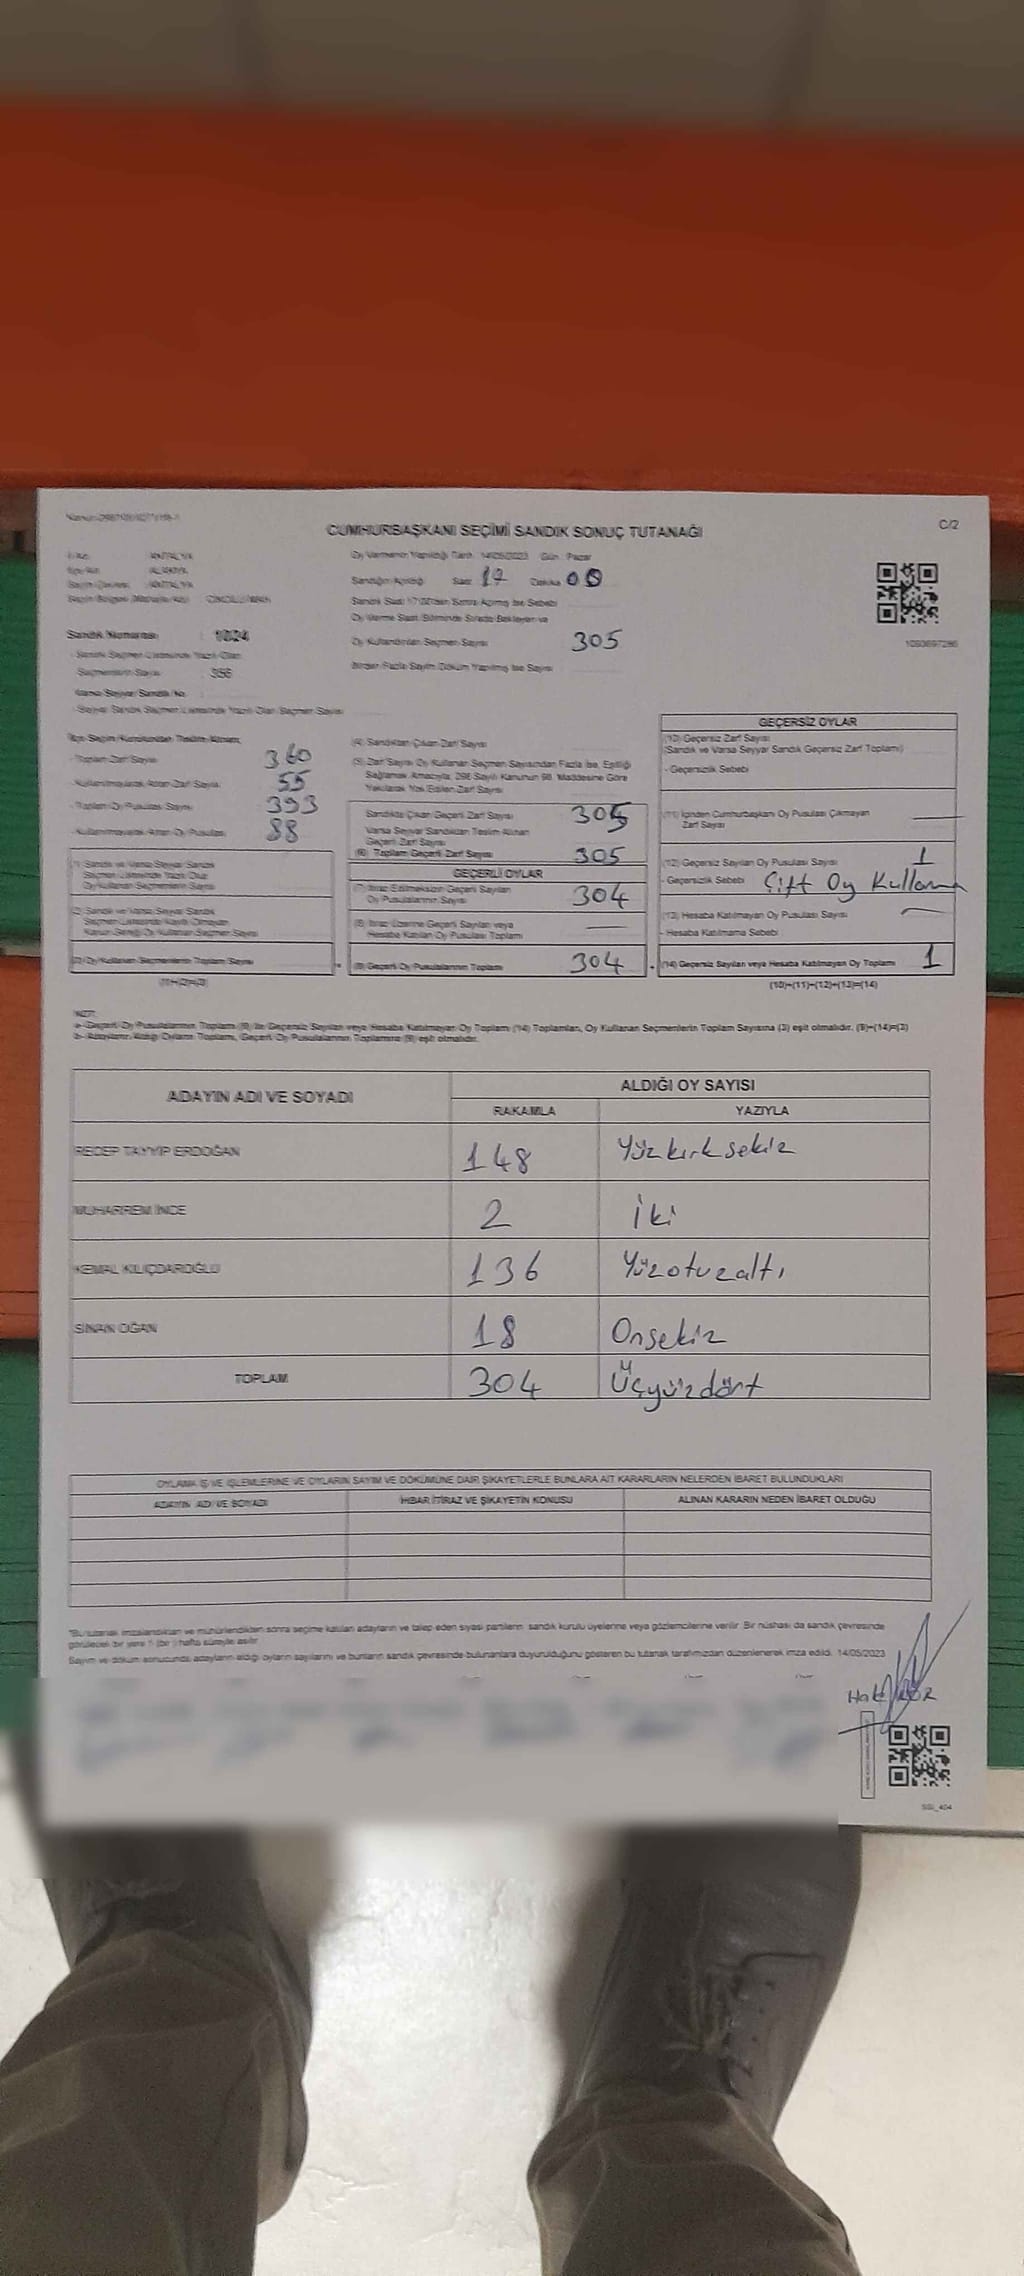 C/2
CUMHURBAŞKANI SEÇİMİ SANDIK SONUÇ TUTANAĞI
İl Adı : ANTALYA
İlçe Adı : ALANYA
Seçim Çevresi : ANTALYA
Seçim Bölgesi (Mahalle/Köy) :
Sandık Numarası : 1024
- Sandık Seçmen Listesinde Yazılı Olan
Seçmenlerin Sayısı :
Varsa Seyyar Sandık No
- Seyyar Sandık Seçmen Listesinde Yazılı Olan Seçmen Sayısı
Oy Vermenin Yapıldığı Tarih 14/05/2023 Gün : Pazar
Sandığın Açıldığı Saat 17 Dakika 00
Sandık Saat 17:00'den Sonra Açılmış İse Sebebi
Oy Verme Saati Bitiminde Sırada Bekleyen ve
Oy Kullandırılan Seçmen Sayısı 305
Birden Fazla Sayım Döküm Yapılmış İse Sayısı
İlçe Seçim Kurulundan Teslim Alınan;
- Toplam Zarf Sayısı 360
- Kullanılmayarak Artan Zarf Sayısı 55
- Toplam Oy Pusulası Sayısı 393
- Kullanılmayarak Artan Oy Pusulası 88
(1) Sandık ve Varsa Seyyar Sandık
Seçmen Listesinde Yazılı Olup
Oy Kullanan Seçmenlerin Sayısı
(2) Sandık ve Varsa Seyyar Sandık
Seçmen Listesinde Kayıtlı Olmayan
Kanun Gereği Oy Kullanan Seçmen Sayısı
(3) Oy Kullanan Seçmenlerin Toplam Sayısı
(1)+(2)=(3)
(4) Sandıktan Çıkan Zarf Sayısı
(5) Zarf Sayısı Oy Kullanan Seçmen Sayısından Fazla İse, Eşitliği
Sağlamak Amacıyla, 298 Sayılı Kanunun 98. Maddesine Göre
Yakılarak Yok Edilen Zarf Sayısı
Sandıkta Çıkan Geçerli Zarf Sayısı 305
Varsa Seyyar Sandıktan Teslim Alınan
Geçerli Zarf Sayısı
(6) Toplam Geçerli Zarf Sayısı 305
GEÇERLİ OYLAR
(7) İtiraz Edilmeksizin Geçerli Sayılan
Oy Pusulalarının Sayısı 304
(8) İtiraz Üzerine Geçerli Sayılan veya
Hesaba Katılan Oy Pusulası Toplamı —
(9) Geçerli Oy Pusulalarının Toplamı 304
GEÇERSİZ OYLAR
(10) Geçersiz Zarf Sayısı
(Sandık ve Varsa Seyyar Sandık Geçersiz Zarf Toplamı)
- Geçersizlik Sebebi
(11) İçinden Cumhurbaşkanı Oy Pusulası Çıkmayan
Zarf Sayısı —
(12) Geçersiz Sayılan Oy Pusulası Sayısı 1
- Geçersizlik Sebebi Çift Oy Kullanma
(13) Hesaba Katılmayan Oy Pusulası Sayısı —
- Hesaba Katılmama Sebebi
(14) Geçersiz Sayılan veya Hesaba Katılmayan Oy Toplamı 1
(10)+(11)+(12)+(13)=(14)
NOT:
a- Geçerli Oy Pusulalarının Toplamı (9) ile Geçersiz Sayılan veya Hesaba Katılmayan Oy Toplam (14) Toplamları, Oy Kullanan Seçmenlerin Toplam Sayısına (3) eşit olmalıdır. (9)+(14)=(3)
b- Adayların Aldığı Oyların Toplamı, Geçerli Oy Pusulalarının Toplamına (9) eşit olmalıdır.
ADAYIN ADI VE SOYADI ALDIĞI OY SAYISI
RAKAMLA YAZIYLA
RECEP TAYYİP ERDOĞAN 148 Yüzkırksekiz
MUHARREM İNCE 2 İki
KEMAL KILIÇDAROĞLU 136 Yüzotuzaltı
SİNAN OĞAN 18 Onsekiz
TOPLAM 304 Üçyüzdört
OYLAMA İŞ VE İŞLEMLERİNE VE OYLARIN SAYIM VE DÖKÜMÜNE DAİR ŞİKAYETLERLE BUNLARA AİT KARARLARIN NELERDEN İBARET BULUNDUKLARI
ADAYIN ADI VE SOYADI İHBAR İTİRAZ VE ŞİKAYETİN KONUSU ALINAN KARARIN NEDEN İBARET OLDUĞU
*Bu tutanak imzalandıktan ve mühürlendikten sonra seçime katılan adayların ve talep eden siyasi partilerin sandık kurulu üyelerine veya gözlemcilerine verilir. Bir nüshası da sandık çevresinde
görülecek bir yere 1 (bir) hafta süreyle asılır.
Sayım ve döküm sonucunda adayların aldığı oyların sayılarını ve bunların sandık çevresinde bulunanlara duyurulduğunu gösteren bu tutanak tarafımızdan düzenlenerek imza edildi. 14/05/2023